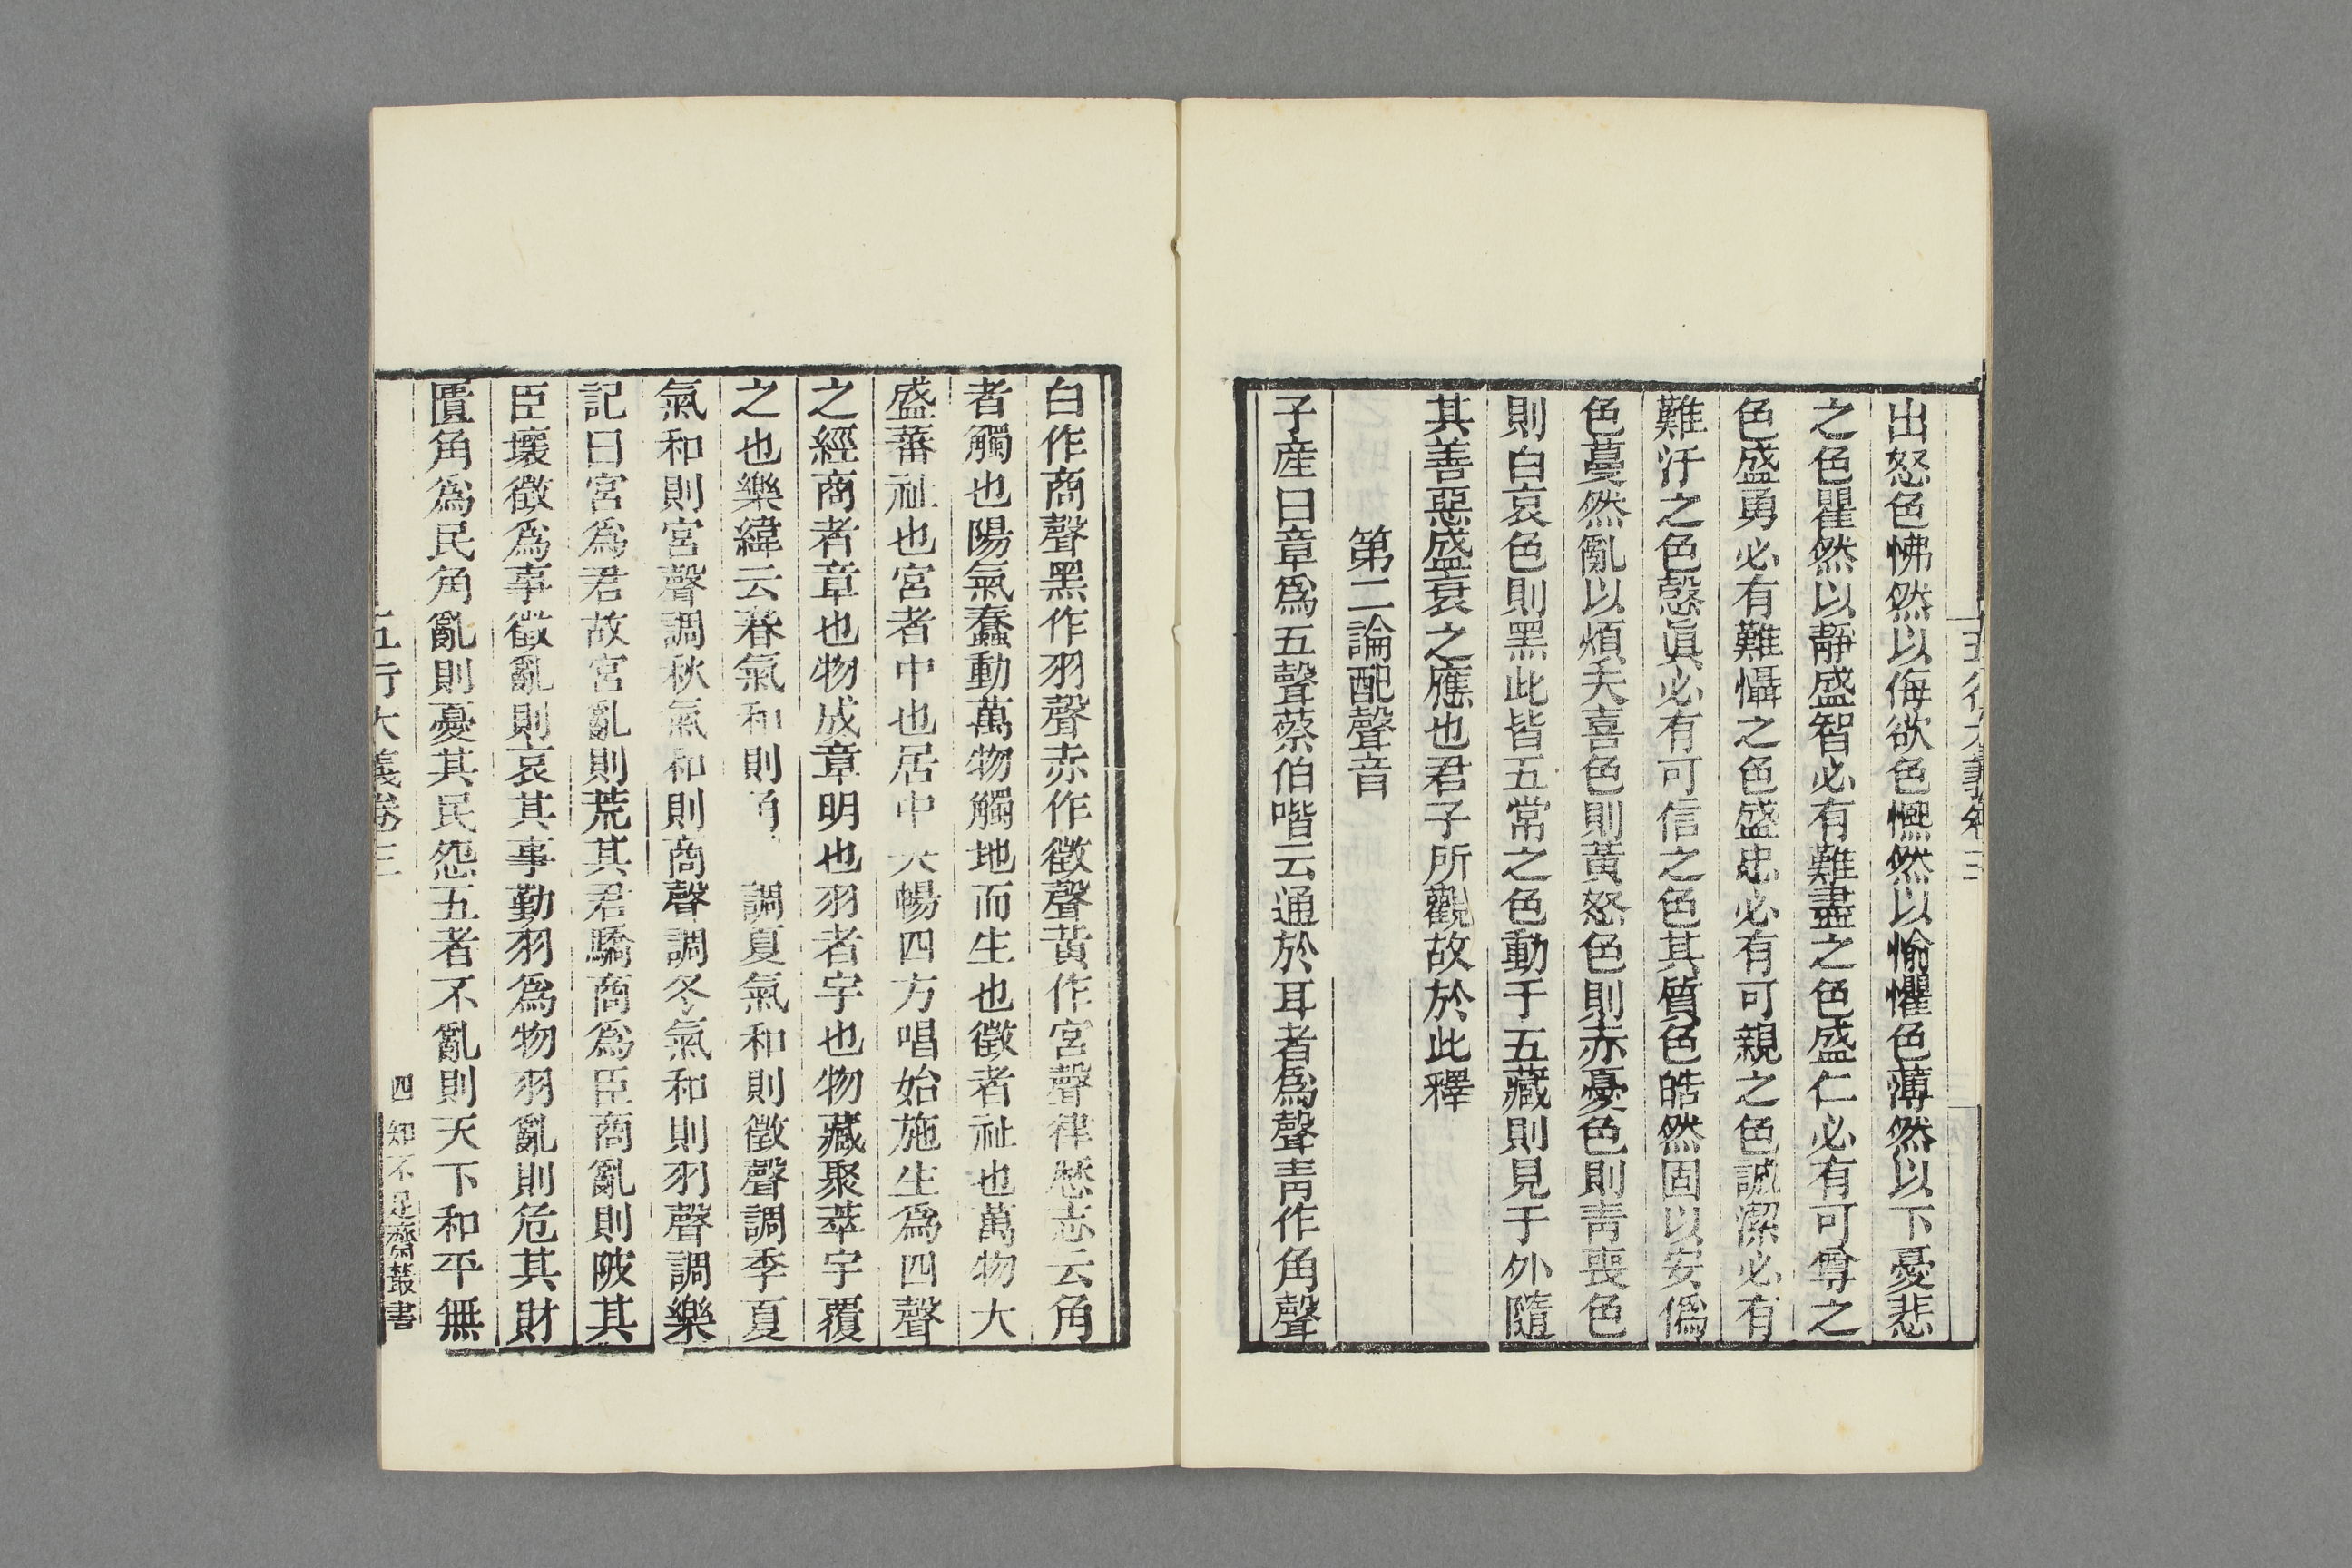 出怒色怫然以侮欲色㦣然以愉懼色薄然以下憂悲
之色瞿然以靜盛智必有難盡之色盛仁必有可尊之
色盛勇必有難懾之色盛忠必有可親之色誠潔必有
難汙之色慤眞必有可信之色其質色皓然固以安僞
色蔓然亂以煩夫喜色則黃怒色則赤憂色則靑喪色
則白哀色則黑此皆五常之色動于五藏則見于外隨
其善惡盛衰之應也君子所觀故於此釋
第二論配聲音
子産曰章爲五聲蔡伯喈云通於耳者爲聲靑作角聲
白作商聲黑作羽聲赤作徵聲黃作宮聲律厯志云角
者觸也陽氣蠢動萬物觸地而生也徵者祉也萬物大
盛蕃祉也宮者中也居中央暢四方唱始施生爲四聲
之經商者章也物成章明也羽者宇也物藏聚萃宇覆
之也樂緯云春氣和則角 調夏氣和則徵聲調季夏
氣和則宮聲調秋氣和則商聲調冬氣和則羽聲調樂
記曰宮爲君故宮亂則荒其君驕商爲臣商亂則陂其
臣壞徵爲事徵亂則哀其事勤羽爲物羽亂則危其財
匱角爲民角亂則憂其民怨五者不亂則天下和平無
五行大義卷三
四
知不足齋叢書